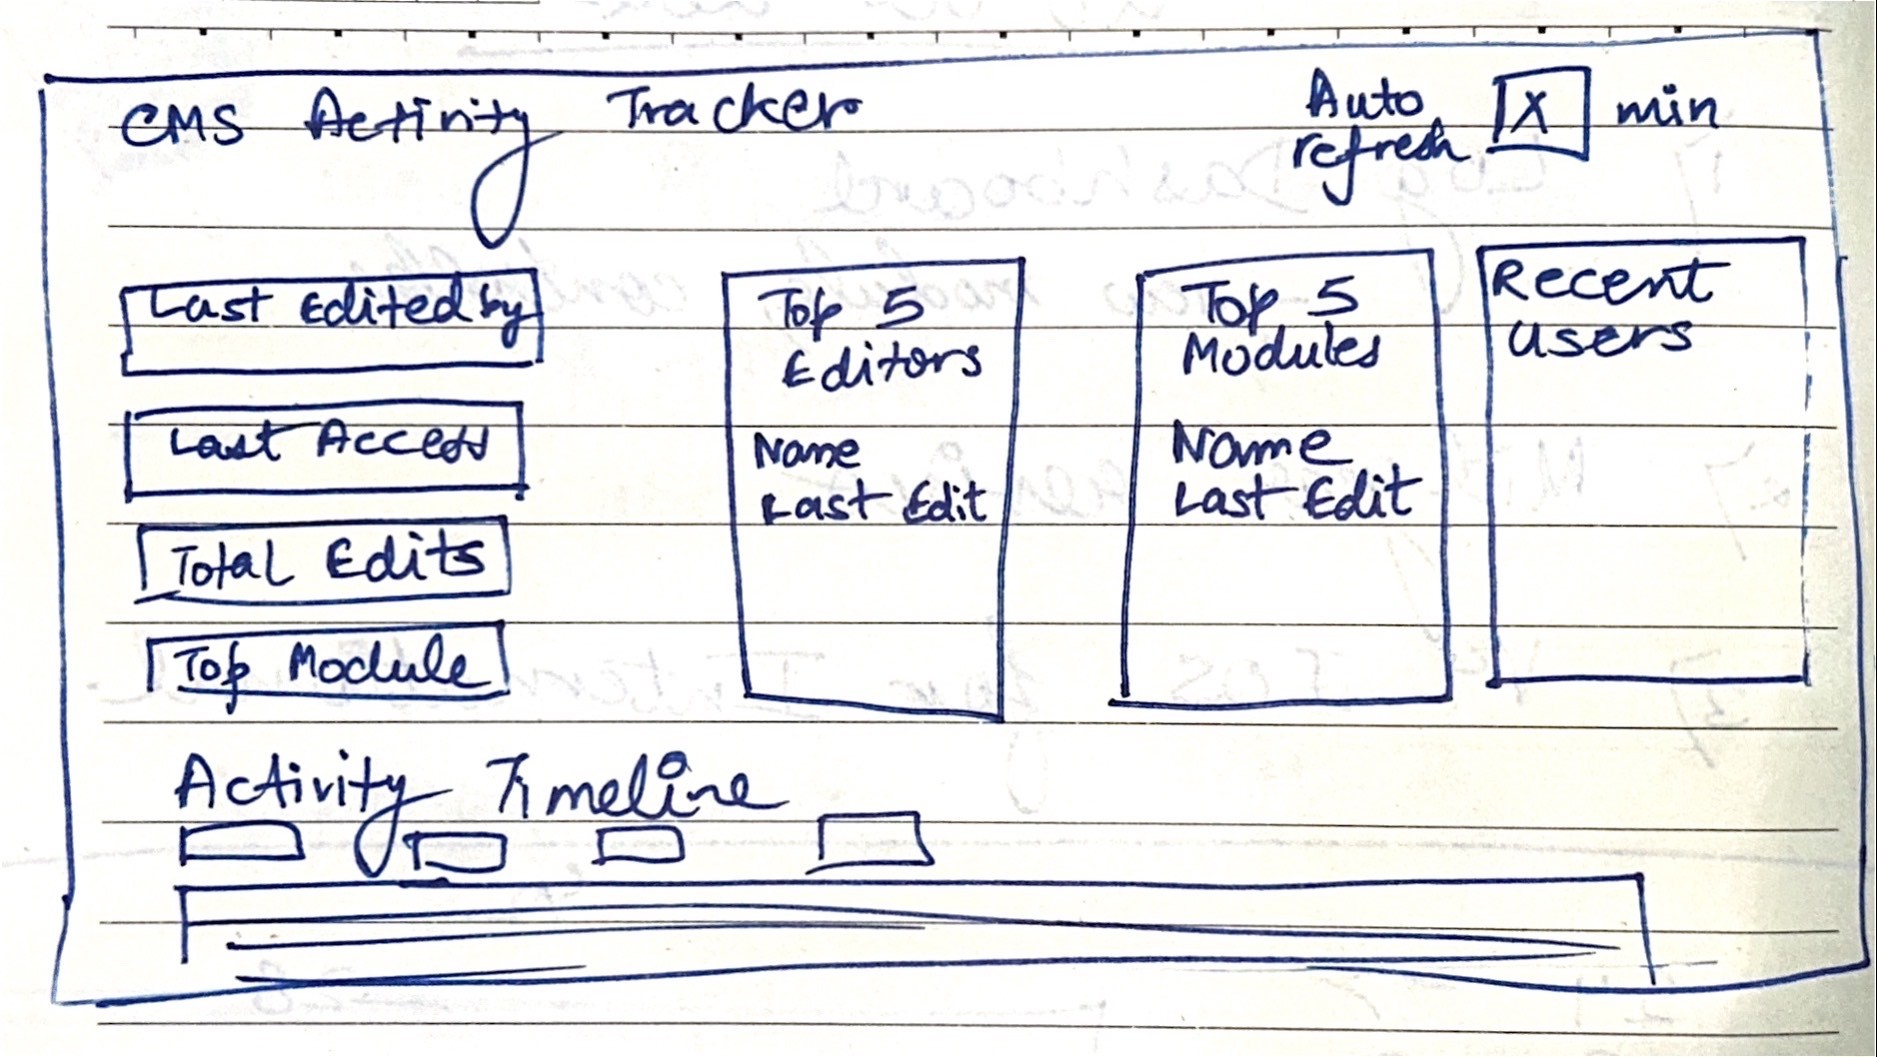 CMS Activity Tracker
Auto refresh X min
Last Edited by
Last Access
Total Edits
Top Module
Top 5
Editors
Name
Last Edit
Top 5
Modules
Name
Last Edit
Recent
Users
Activity Timeline